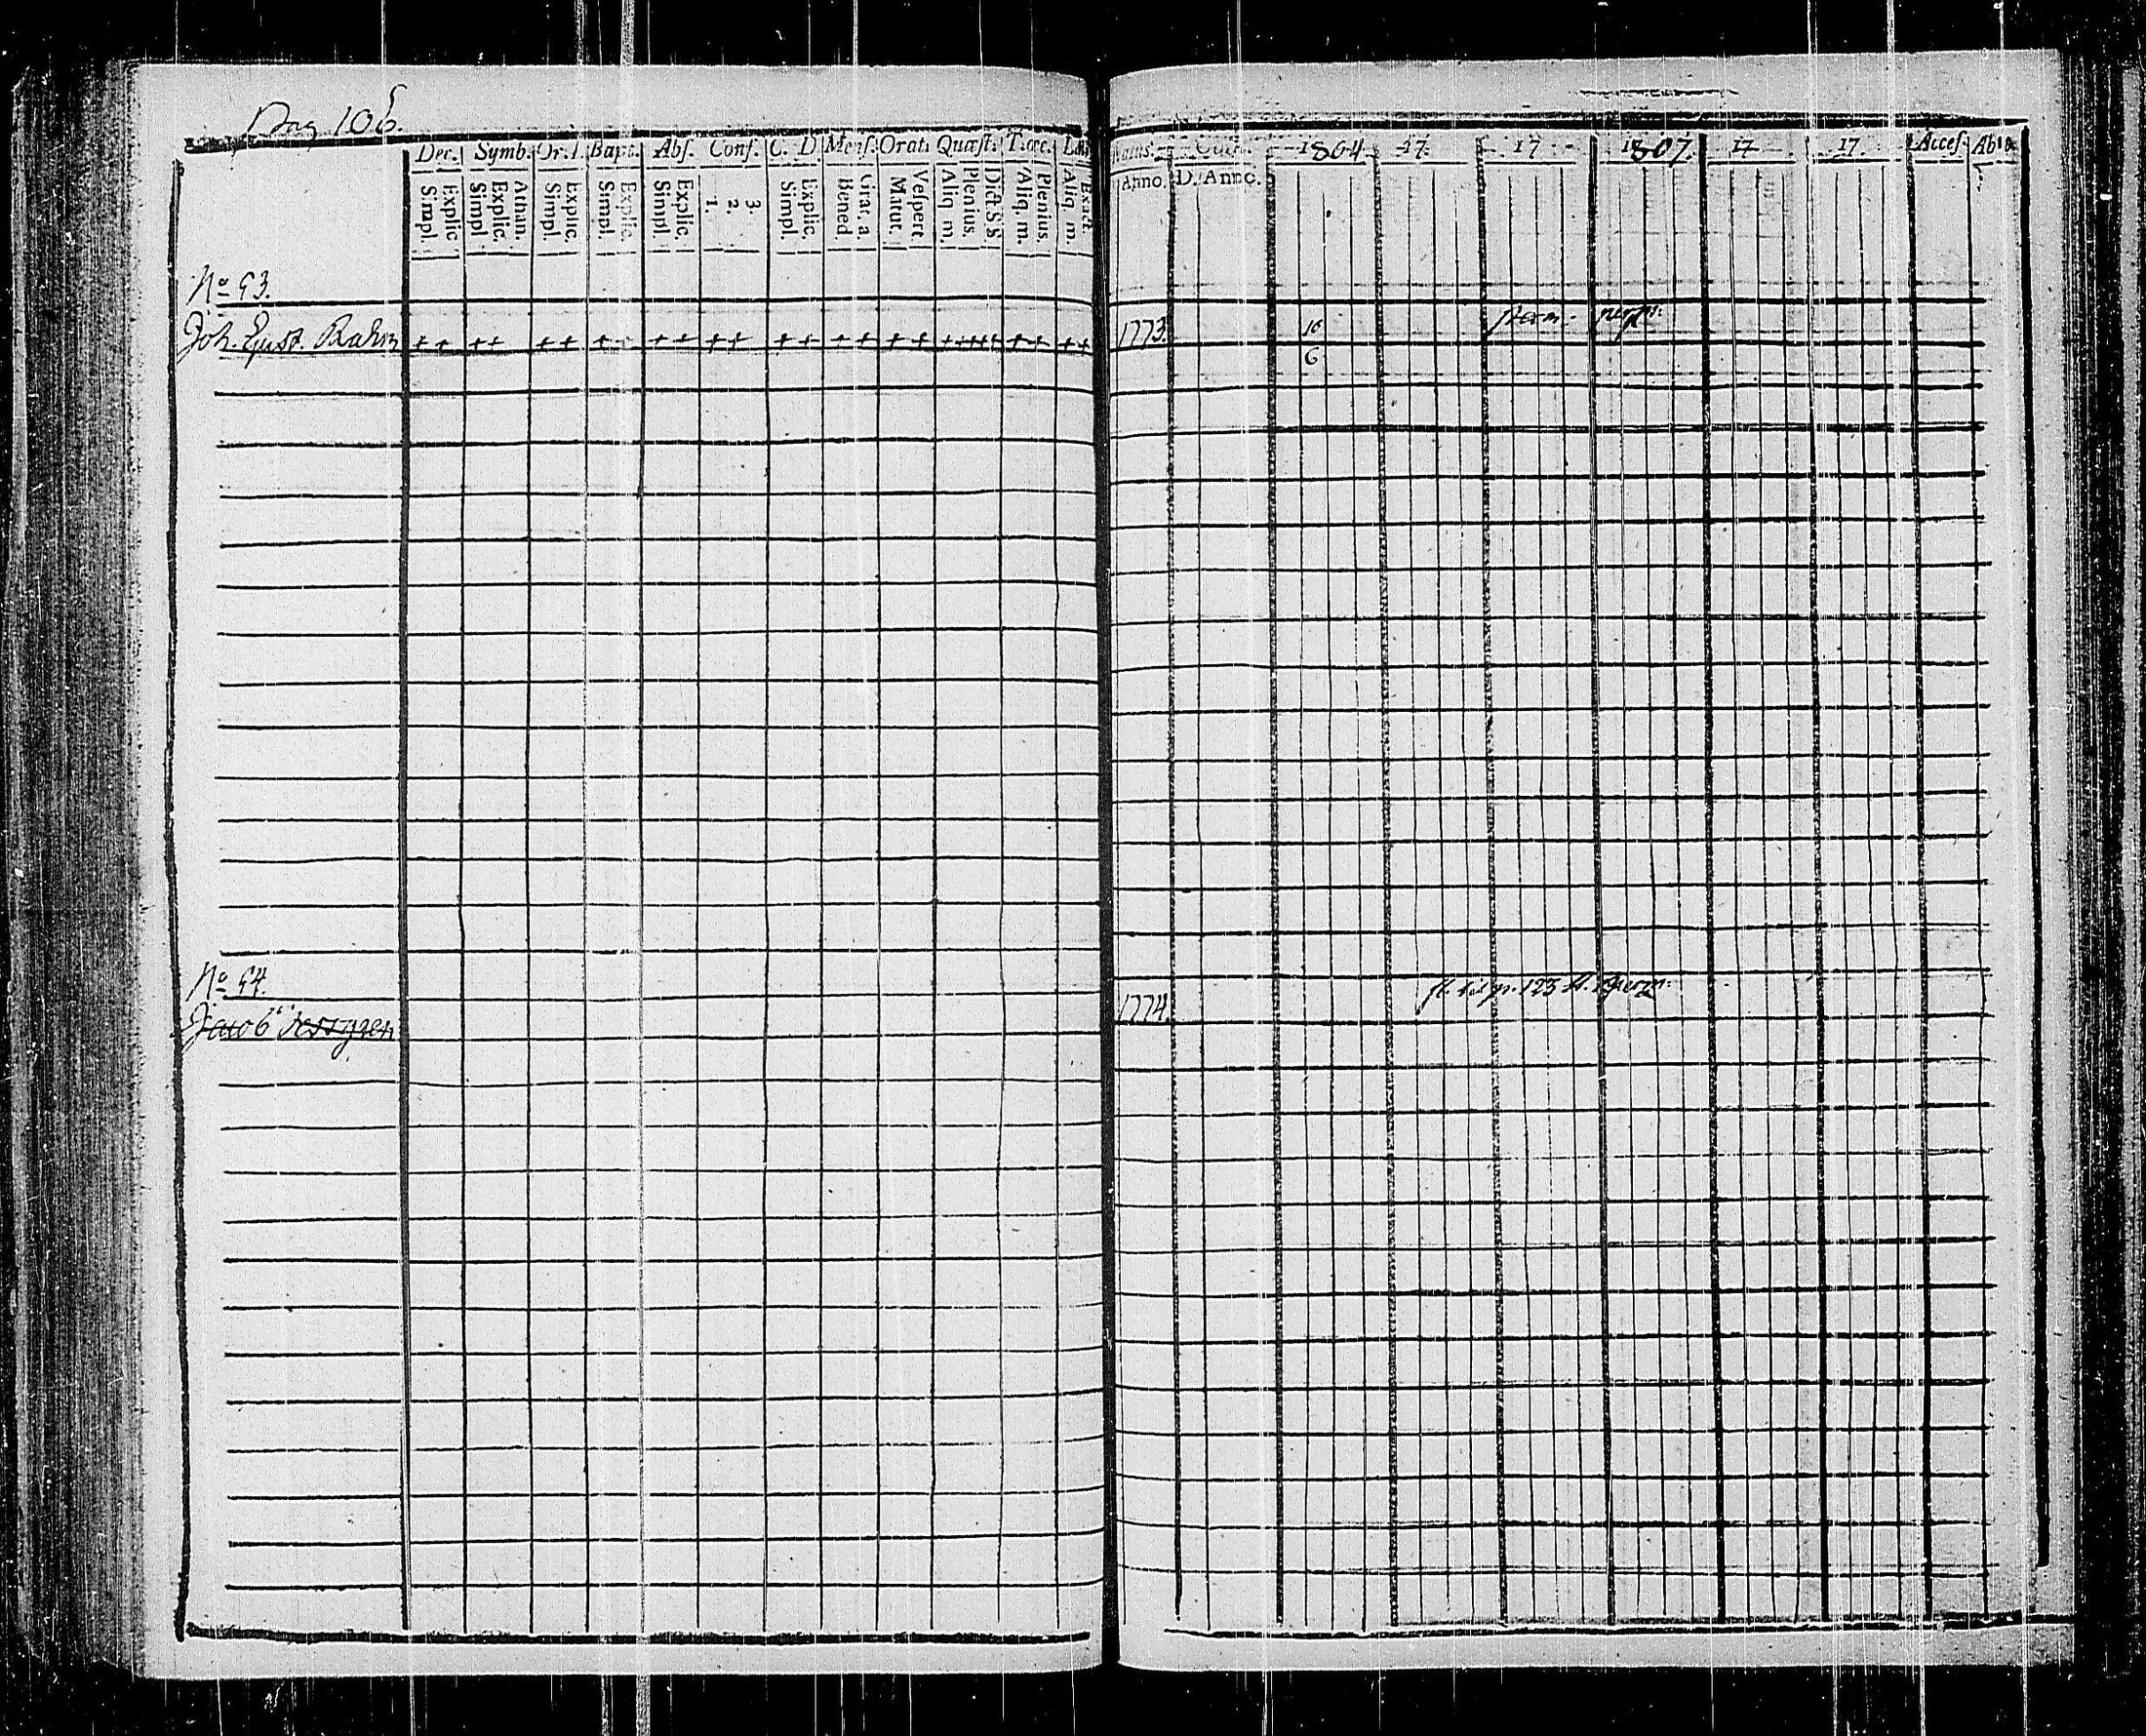 Pag 106.
Dec. Symb. Or. D. Bapt. Abs. Conf. C. D. Mens. Orat. Quæst. T. œc.
Simpl. Explic Simpl Explic. Athan. Simpl. Explic. Simpl. Explic. Simpl. Explic. 1. 2. 3. Simpl. Explic. Bened. Grat. a. Matut. Vespert. Aliq m. Plenius. Dict S S. Aliq. m. Plenius. Aliq. m. Exact.
Natus. 1804 17 17 1807. 17 17 Acces. Abit
Anno. D. Anno.
No 93.
Joh. Gust. Rahm ++ ++ ++ ++ ++ ++ ++ ++ ++ +++++ ++ ++ 1773. 16
6
No 94.
Jacob 1774.